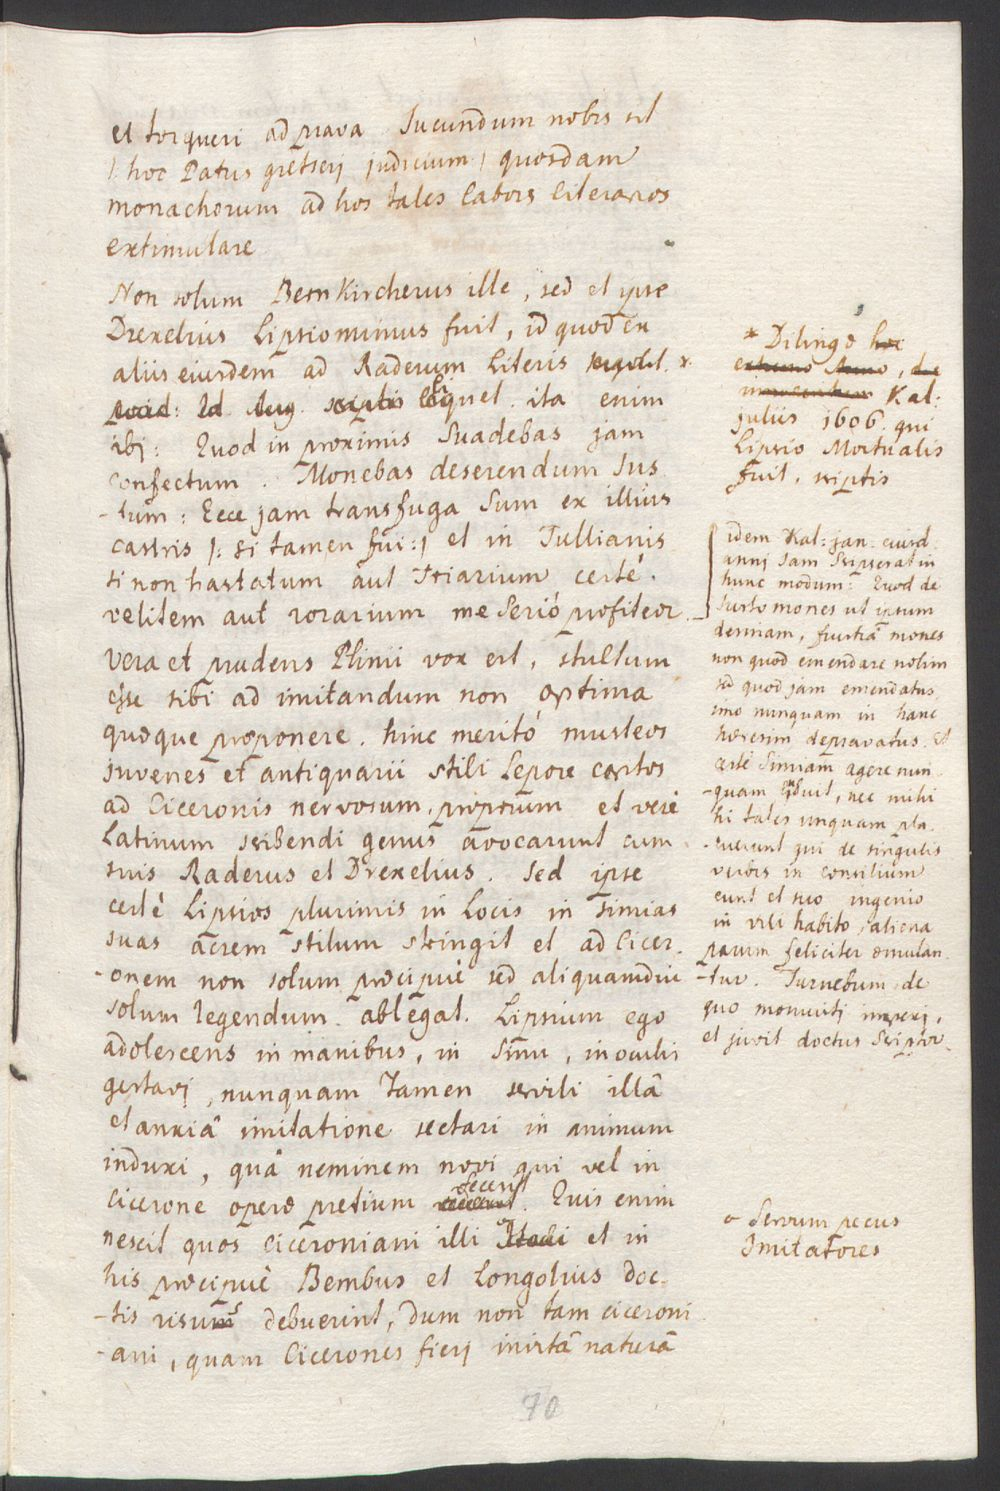 et torqueri ad prava Jucundum nobis est
/: hoc Patris gretserj judicium / quosdam
monachorum ad hos tales labores literarios
extimulare
Non solum Bern Kircherus ille, sed et ipse
Drexelius Lipsiomimus fuit, id quod ex
aliis eiusdem ad Raderum Literis
liquet. ita enim
ibj: Quod in proximis Suadebas jam
confectum. Monebas deserendum Jus
-tum: Ecce jam transfuga Sum ex illius
castris /: si tamen fui :/ et in Tullianis
si non hastatum aut Triarium certé.
velitem aut rorarium me Serió profiteor.
Vera et prudens Plinii vox est, stultum
esse sibi ad imitandum non optima
quæque proponere. hinc meritó musteos
juvenes et antiquarii stili Lepore captos
ad Ciceronis nervosum, proprium et veré
Latinum scribendi genus avocarunt cum
suis Raderus et Drexelius. Sed ipse
certè Lipsios plurimis in Locis in simias
suas acrem stilum stringit et ad Cicer
-onem non solum præcipuè sed aliquamdiu
solum legendum ablegat. Lipsium ego
adolescens in manibus, in Sinu, in oculis
gestavj, nunquam Tamen servili illâ
et anxiâ imitatione sectari in animum
induxi, quâ neminem novi qui vel in
Cicerone operæ pretium fecerit. Quis enim
nescit quos Ciceroniani illi Itali et in
his præcipuè Bembus et Longolius doc
-tis risus debuerint, dum non tam ciceroni
-ani, quam Cicerones fierj invitâ naturâ
* Dilingæ
Kal:
Juliis 1606. qui
Lipsio Mortualis
fuit, scriptis
idem Kal: Jan. eiusd
annj Jam Scripserat in
hunc modum: Quod de
Justo mones ut ipsum
desinam, frustrâ mones
non quod emendare nolim
sed quod jam emendatus,
imo nunquam in hanc
hæresim depravatus. Et
certé Simiam agere nun
-quam libuit, nec mihi
hi tales unquam pla
-cuerunt qui de singulis
verbis in consilium
eunt et suo ingenio
in vili habito, aliena
parum feliciter æmulan
-tur. Turnebum de
quo monuisti inspexj,
et juvit doctus Scriptor.
o Servum pecus
Imitatores
70